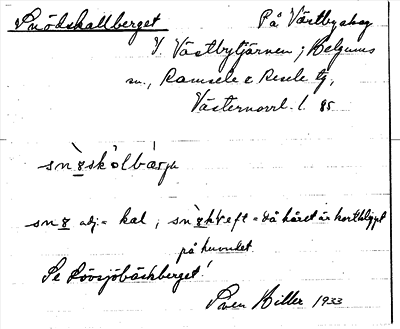 Snödskallberget På Västbyskog
V. Västbytjärnen, Helgums
sn., Ramsele & Resele tg,
Västernorrl. l. 85
snɞ̀skɔ̀lbærjə
snɞ adj. = kal; = då håret är kortklippt
på huvudet
Se Rövsjöbäckberget!
Sven Hiller 1933